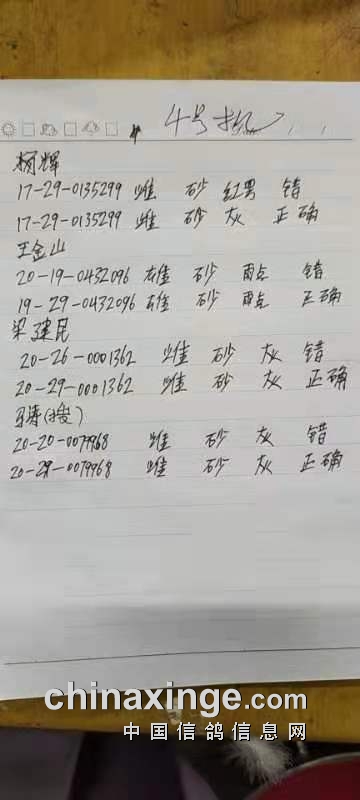 4号机
杨辉
17-29-0135299 雌 砂 红男 错
17-29-0135299 雌 砂 灰 正确
王金山
20-19-0432096 雄 砂 雨点 错
19-29-0432096 雄 砂 雨点 正确
梁建民
20-26-0001362 雌 砂 灰 错
20-29-0001362 雌 砂 灰 正确
马涛(搜)
20-20-0079968 雌 砂 灰 错
20-29-0079968 雌 砂 灰 正确
chinaxinge.com
中国信鸽信息网